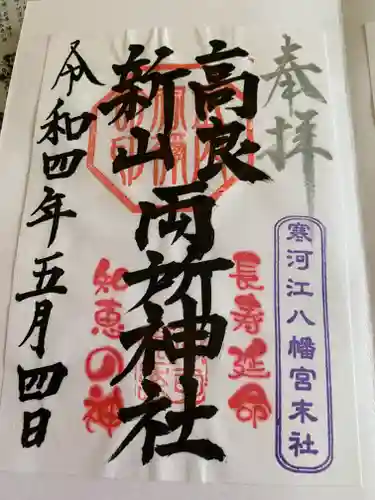 奉拝
寒河江八幡宮末社
長寿延命
高良
新山
両所神社
知恵の神
令和四年五月四日